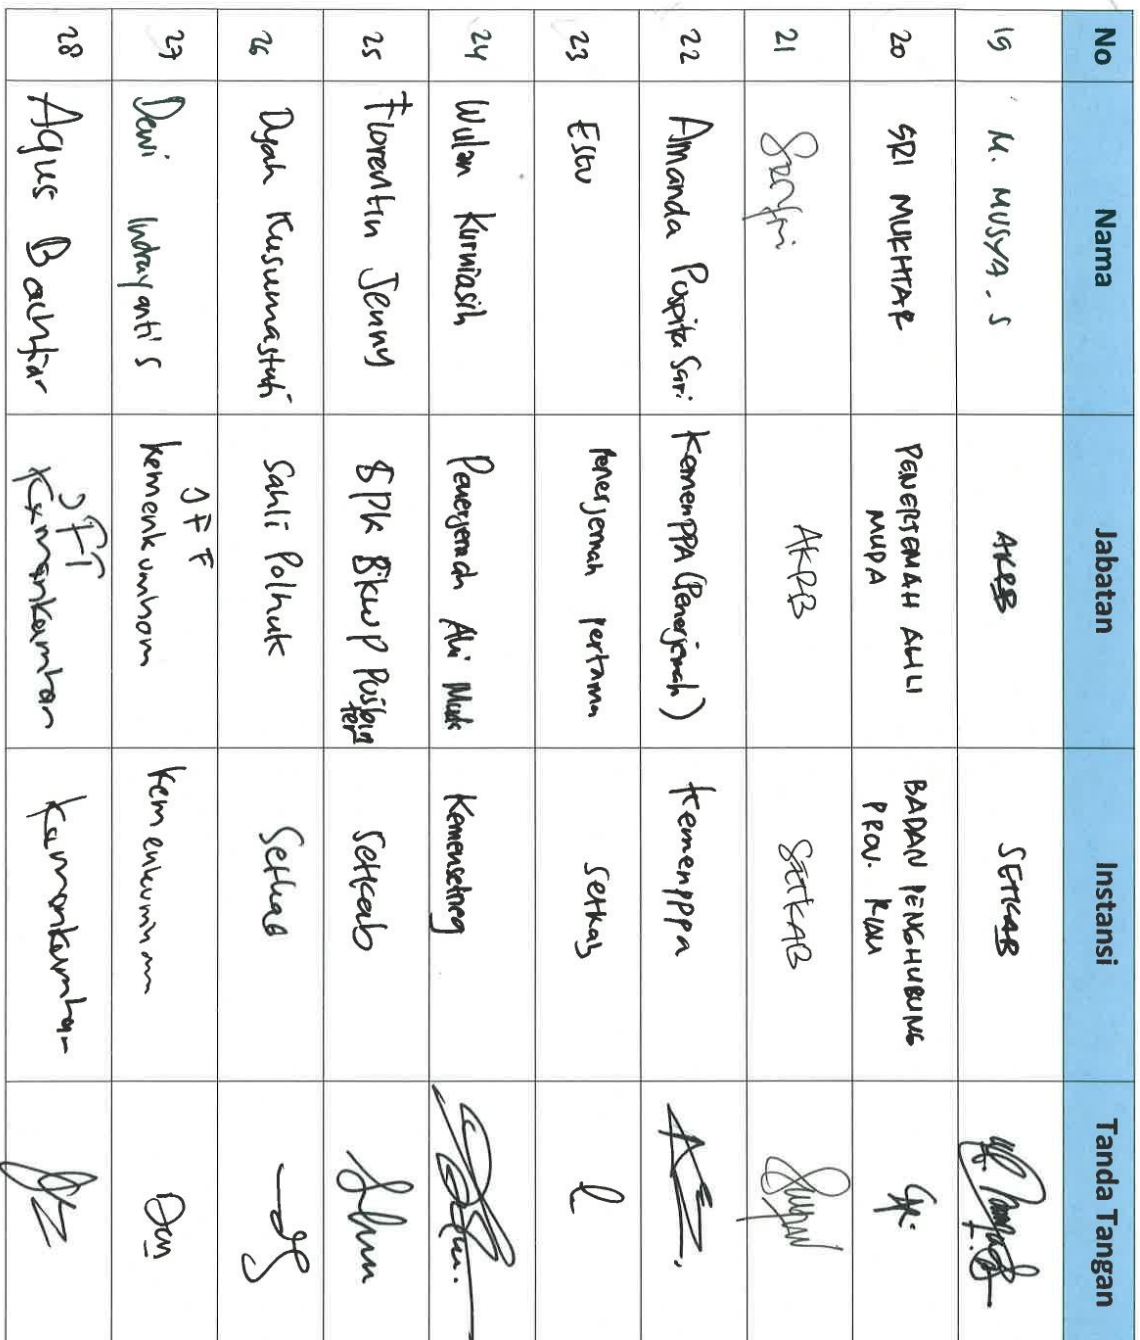 No Nama Jabatan Instansi Tanda Tangan
19 M. MUSYA. S AKPB SETKAB
20 SRI MUKHTAR PENERJEMAH AHLI BADAN PENGHUBUNG
MUDA PROV. RIAU
21 AKPB SETKAB
22 Amanda Puspita Sari KemenPPA (Penerjemah) Kemenpppa
23 Estu Penerjemah Pertama Setkab
24 Wulan Kurniasih Penerjemah Ahli Muda Kemensetneg
25 Florentin Jenny Setkab
26 Dyah Kusumastuti Sahli Polhuk Setkab
27 Dewi Indrayanti S JFF
Kemenkumham Kemenkumham
28 Agus Bachtiar JFT
Kemenkumham Kemenkumham